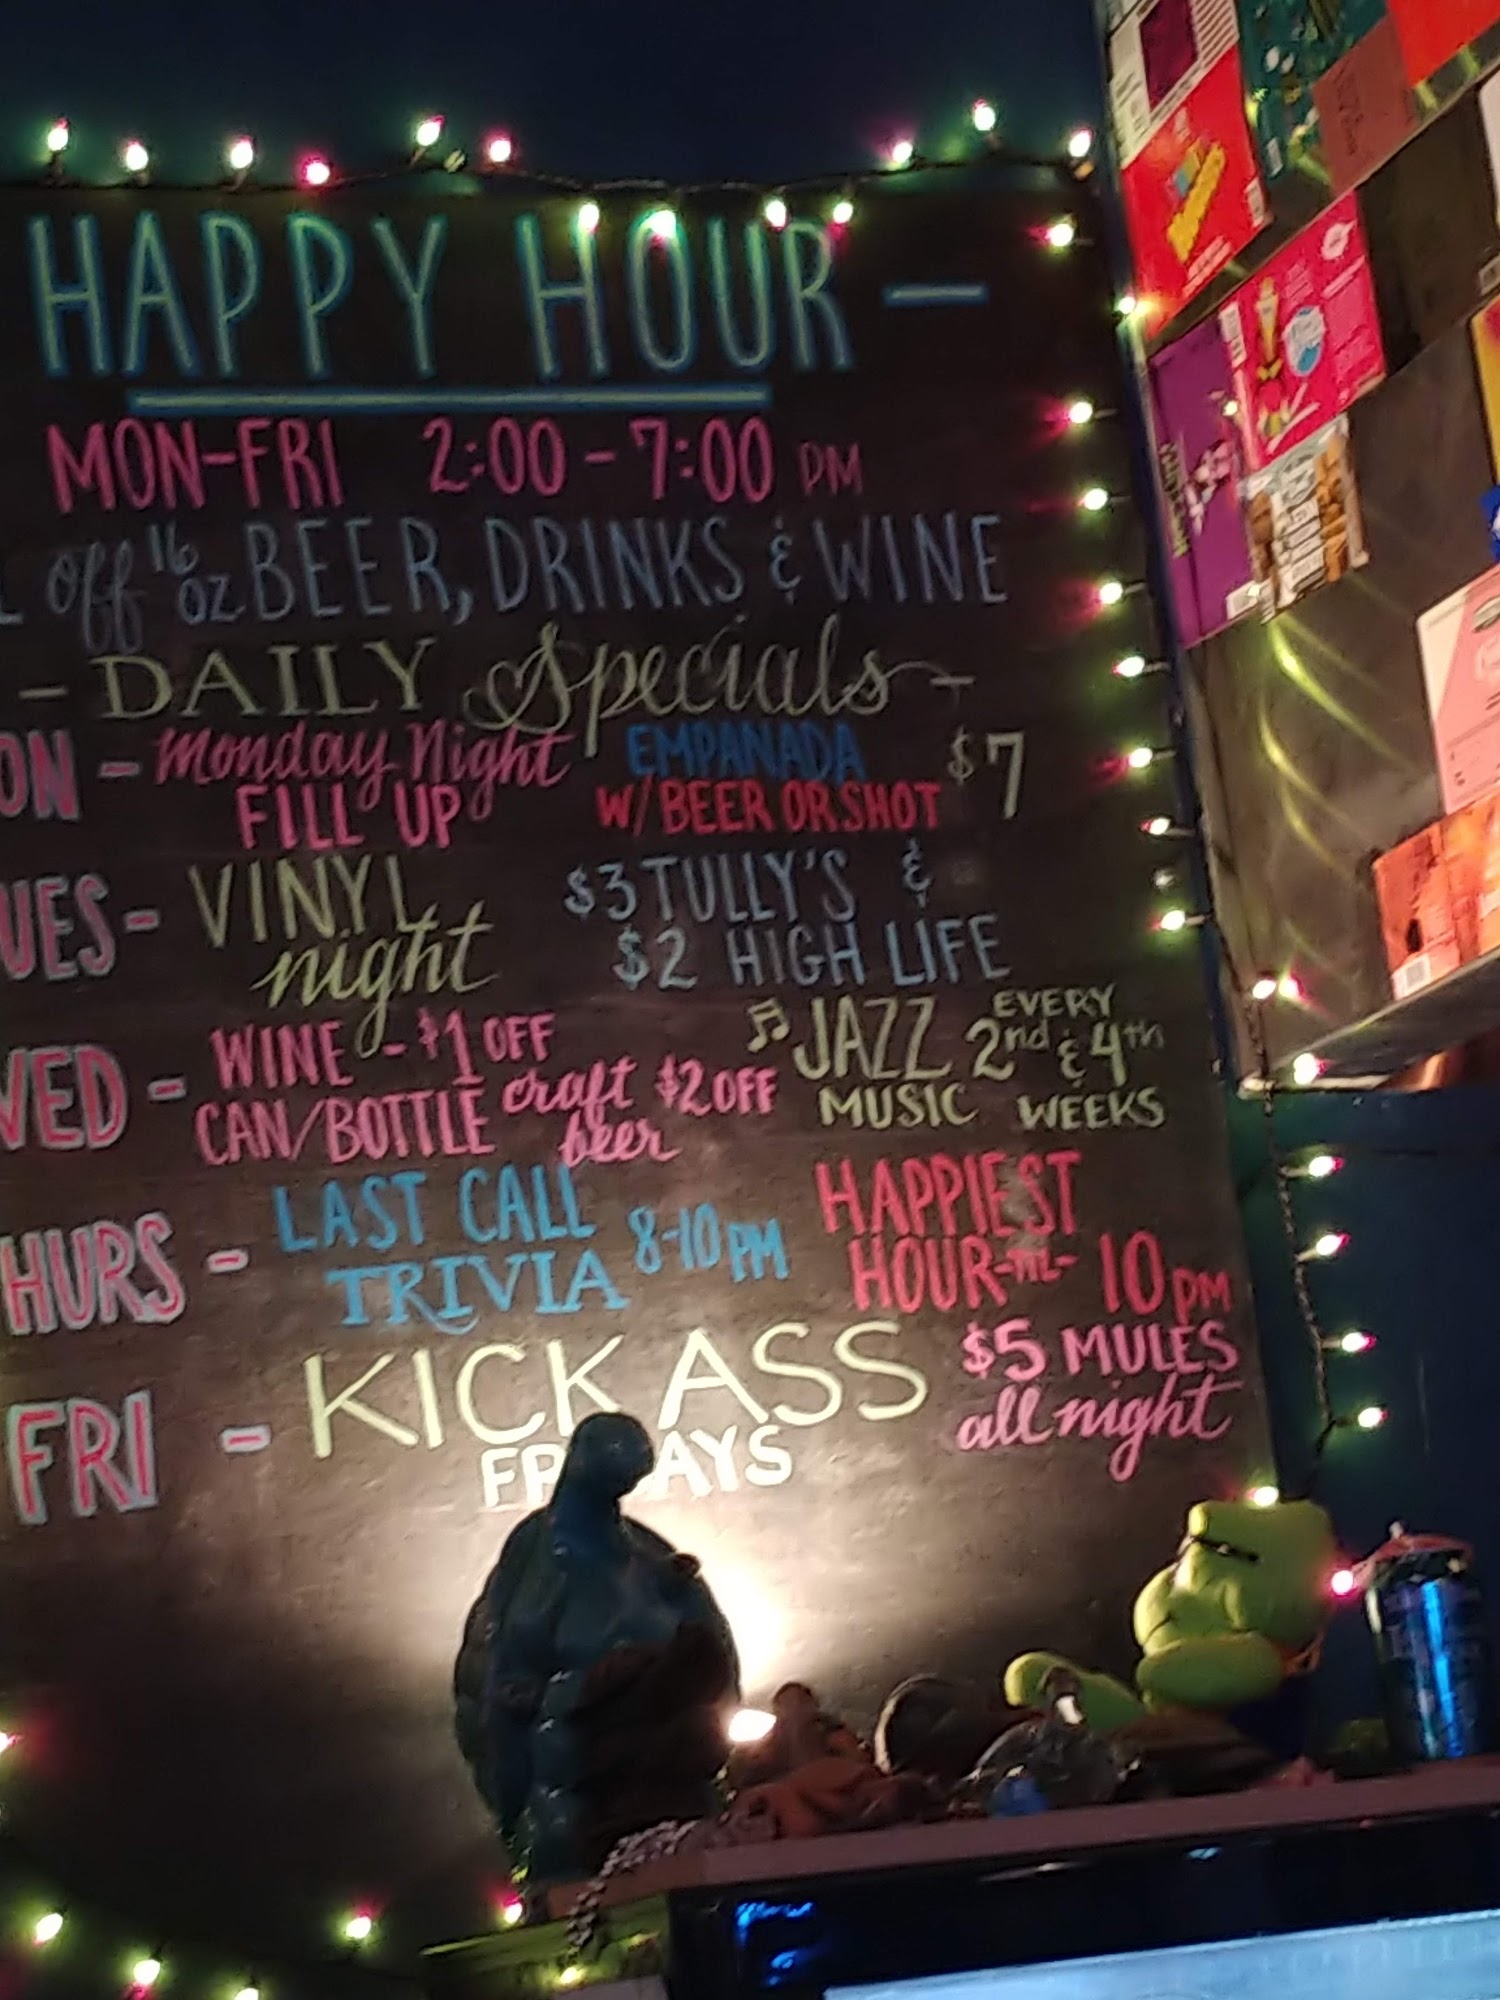 HAPPY HOUR —
MON-FRI 2:00 - 7:00 PM
off 16 OZ BEER, DRINKS & WINE
- DAILY Specials -
ON - Monday Night FILL UP EMPANADA W/ BEER OR SHOT $7
UES - VINYL night $3 TULLY'S & $2 HIGH LIFE
WED - WINE - $1 OFF ♫ JAZZ MUSIC EVERY 2nd & 4th WEEKS
CAN/BOTTLE craft beer $2 OFF
HURS - LAST CALL TRIVIA 8-10 PM HAPPIEST HOUR -TIL- 10 PM
FRI - KICK ASS FR AYS $5 MULES all night